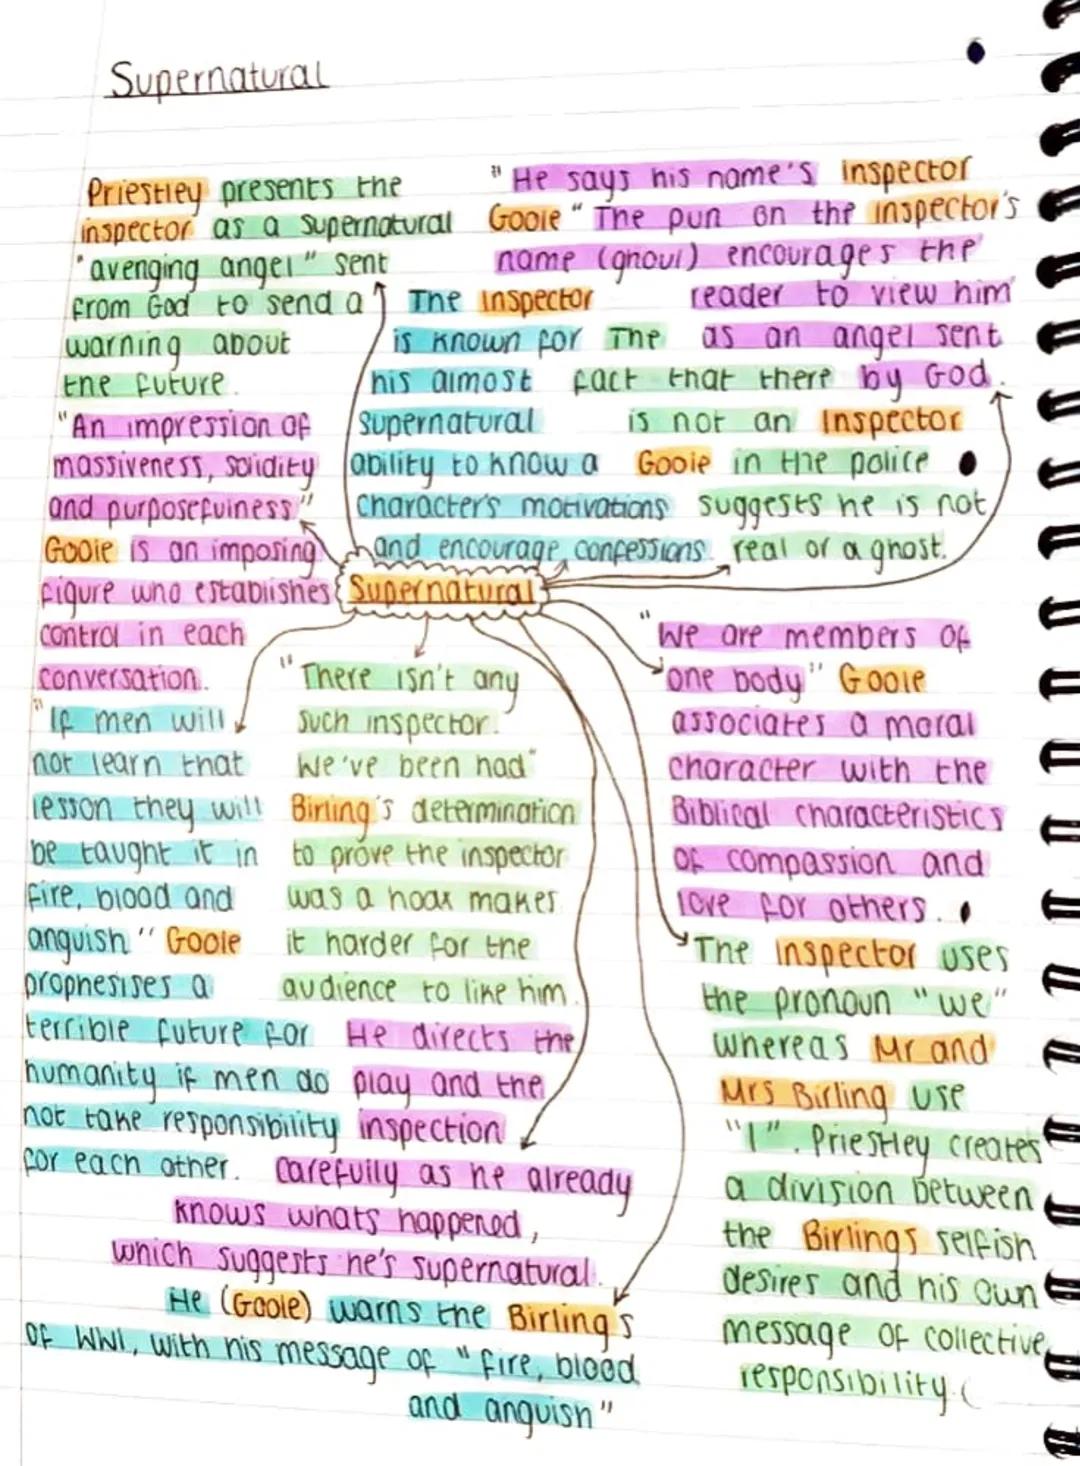 Supernatural
Priestley presents the
inspector as a supernatural
"avenging angel" sent
from God to send a
warning about
the future.
"He says his name's Inspector
Goole" The pun on the inspector's
name (ghoul) encourages the
reader to view him
as an angel sent
by God.
The Inspector
is known for
his almost
supernatural
ability to know a
character's motivations
and encourage confessions.
The
fact that there
is not an Inspector
Goole in the police
suggests he is not
real or a ghost.
"An impression of
massiveness, solidity
and purposefulness"
Goole is an imposing
figure who establishes
control in each
conversation.
Supernatural
"If men will
not learn that
lesson they will
be taught it in
fire, blood and
anguish" Goole
prophesises a
terrible future for
humanity if men do
not take responsibility
for each other.
"There isn't any
such inspector.
We've been had"
Birling's determination
to prove the inspector
was a hoax makes
it harder for the
audience to like him.
"We are members of
one body" Goole
associates a moral
character with the
Biblical characteristics
of compassion and
love for others.
The Inspector uses
the pronoun "we"
whereas Mr and
Mrs Birling use
"I". Priestley creates
a division between
the Birlings selfish
desires and his own
message of collective
responsibility.
He directs the
play and the
inspection
carefully as he already
knows whats happened,
which suggests he's supernatural.
He (Goole) warns the Birlings
of WWI, with his message of "fire, blood
and anguish"